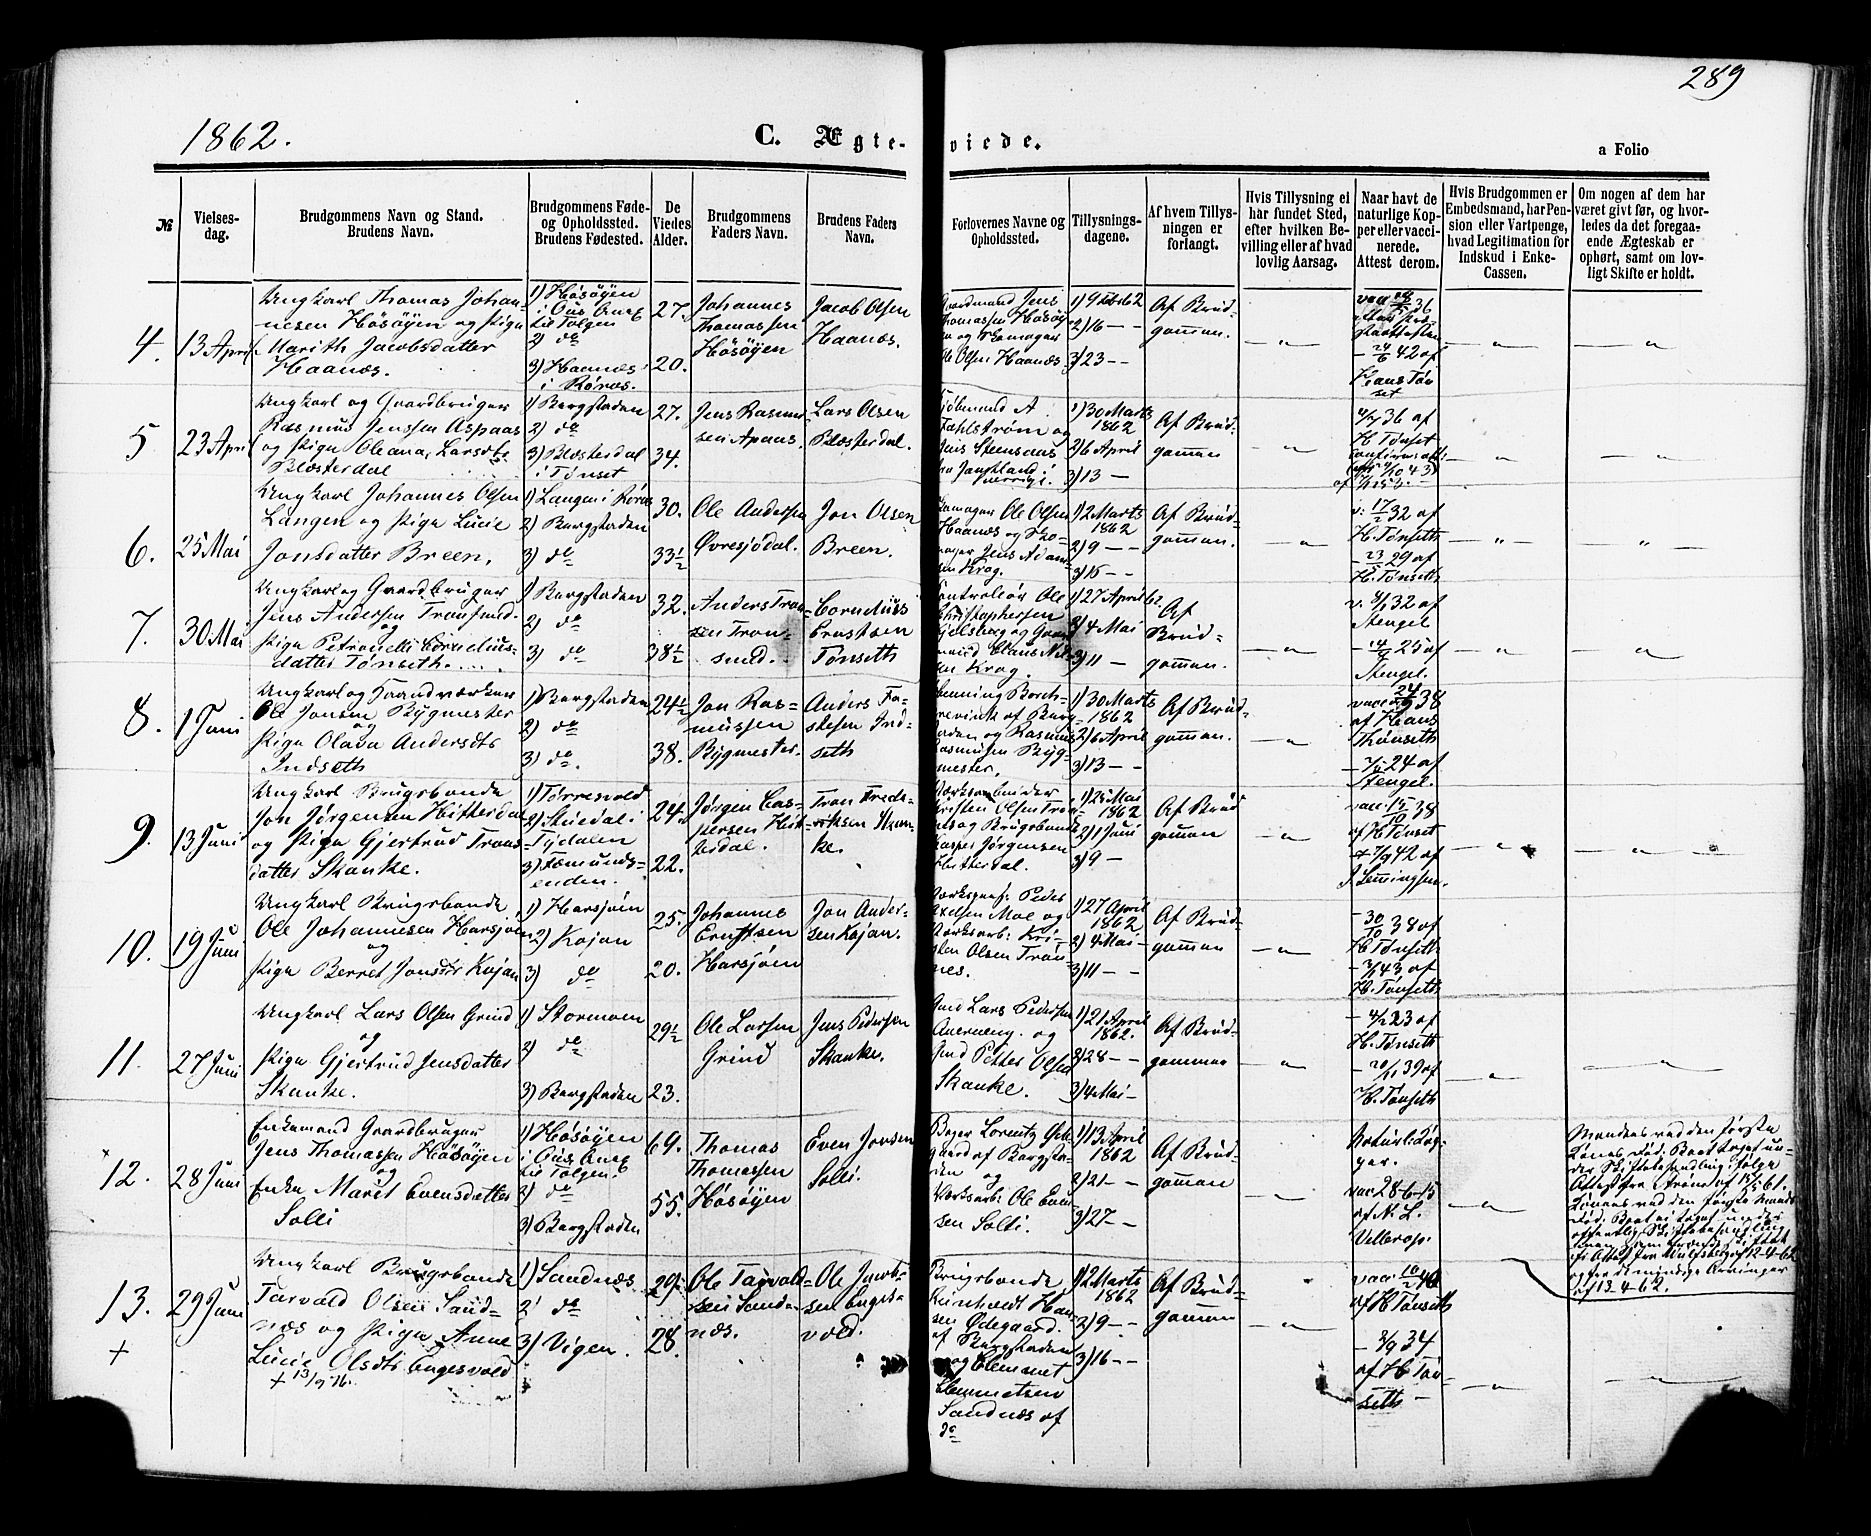 289
1862.
C. Ægte-viede.
a Folio
№
Vielses-
dag.
Brudgommens Navn og Stand.
Brudens Navn.
Brudgommens Føde-
og Opholdssted.
Brudens Fødested.
De
Viedes
Alder.
Brudgommens
Faders Navn.
Brudens Faders
Navn.
Forlovernes Navne og
Opholdssted.
Tillysnings-
dagene.
Af hvem Tillys-
ningen er
forlangt.
Hvis Tillysning ei
har fundet Sted,
efter hvilken Be-
villing eller af hvad
lovlig Aarsag.
Naar havt de
naturlige Kop-
per eller vacci-
nerede.
Attest derom.
Hvis Brudgommen er
Embedsmand, har Pen-
sion eller Vartpenge,
hvad Legitimation for
Indskud i Enke-
Cassen.
Om nogen af dem har
været givt før, og hvor-
ledes da det foregaa-
ende Ægteskab er
ophørt, samt om lov-
ligt Skifte er holdt.
4.
13 April
Ungkarl Thomas Johan-
nesen Høsøyen og Pige
Marith Jacobsdatter
Haanæs.
1) Høsøyen
i Øus Anex
til Tolgen
2) do
3) Haanæs
i Røros.
27.
20.
Johannes
Thomassen
Høsøyen
Jacob Olsen
Haanæs.
Gaardmand Jens
Thomassen Høsøy-
en og
Ole Olsen Haanæs
1) 9 Feb 62
2) 16 - -
3) 23 - -
Af Brud-
gommen.
- " -
36
- 24/6 42 af
Hans Tøn-
set
- " -
- " -
5
23 April
Ungkarl og Gaardbruger
Rasmus Jenssen Aspaas
og Pige Oleana Larsdtr
Blæsterdal
1) Bergstaden
2) do
3) Blæsterdal
i Tønset
27.
34.
Jens Rasmus-
sen Apaas.
Lars Olsen
Blæsterdal.
A
Fahlstrøm og
Jens Steensaas
fra Jemtland i
Sverrige.
1) 30 Marts
1862
2) 6 April
3) 13 -
Af Brud-
gommen
- " -
36 af
H. Tønset
- " -
- " -
6.
25 Mai
Ungkarl Johannes Olsen
Langen og Pige Lucie
Jonsdatter Breen.
1) Langen i Røros
2) Bergstaden
3) do
30.
33½
Ole Andersen
Øvresjødal.
Jon Olsen
Breen.
Ole Olsen
Haanæs og Sko-
mager Jens Adam-
sen Krog.
1) 2 Marts
1862
2) 9 - -
3) 16 - -
Af Brud-
gommen.
- " -
v. 17/2 32 af
H. Tønseth
- 23/5 29 af
H. Tønseth
- " -
- " -
7.
30 Mai
Ungkarl og Gaardbruger
Jens Andersen Tronsmed
og
Pige Petronelle Cornelius-
datter Tønseth.
1) Bergstaden
2) do
3) do
32.
38½
Anders Tron-
sen Tron-
smed.
Cornelius
Ernstsen
Tønseth
Controleør Ole
Christophersen
Hjelsberg og Gaard-
mand Claus Niel-
sen Krog.
1) 27 April 62.
2) 4 Mai
3) 11 -
Af
Brud-
gommen.
32 af
Stengel
25 af
Stengel.
- " -
- " -
8.
1 Juni
Ungkarl og Haandværker
Ole Jonsen Bygmester
og
Pige Olava Andersdtr
Indseth
1) Bergstaden
2) do
3) do.
24½
38.
Jon Ras-
mussen
Bygmester.
Anders Fa-
stesen Ind-
seth
Henning Borch-
grevink af Berg-
staden og Rasmus
Rasmusen Byg-
mester.
1) 30 Marts
1862
2) 6 April
3) 13 - -
Af Brud-
gommen.
- " -
38
af Hans
Thønseth
24 af
Stengel.
9.
13 Juni
Ungkarl Brugsbonde
Jon Jørgensen Hitterdal
og Pige Gjertrud Trons-
datter Skanke.
1) Torresvold
2) Stuedal i
Tydalen
3) Fæmunds-
enden.
24.
22.
Jørgen Cas-
persen Hit-
terdal.
Tron Frede-
riksen Skan-
ke.
Værksarbeider
Kristen Olsen Trøn-
næs og Brugsbonde
Kasper Jørgensen
Hitterdal.
1) 25 Mai
1862
2) 1 Juni
3) 9 -
Af Brud
gommen
- " -
vac: 15/10 38
af H. Tønset
42 af
J. Lemmingsen.
- " -
- " -
10.
19 Juni
Ungkarl Brugsbonde
Ole Johannesen Harsjøen
og
Pige Berret Jonsdtr Kojan
1) Harsjøen
2) Kojan
3) do
25.
20.
Johannes
Ernstsen
Harsjøen
Jon Ander-
sen Kojan.
Peder
Axelsen Moe og
Værksarb: Kri-
sten Olsen Trøn-
næs.
1) 27 April
1862
2) 4 Mai -
3) 11 - -
Af Brud-
gommen
- " -
- 30/10 38 af
H. Tønseth
43 af
H. Tønseth
11.
27 Juni
Ungkarl Lars Olsen Grind
og
Pige Gjertrud Jensdatter
Skanke.
1) Stormoen
2) do
3) Bergstaden
29½
23.
Ole Larsen
Grind
Jens Pedersen
Skanke.
Gmd Lars Pedersen
og
Gmd Petter Olsen
Skanke.
1) 21 April
1862.
2) 28 - -
3) 4 Mai -
Af Brud-
gommen
- " -
23 af
H. Tønseth
39 af
H. Tønseth
- " -
- " -
12.
28 Juni
Enkemand Gaardbruger
Jens Thomassen Høsøyen
og
Enke Maret Evensdatter
Solli
1) Høsøyen
i Øus Anex
til Tolgen
2) do
3) Bergstaden
69.
55.
Thomas
Thomassen
Høsøyen
Even Jonsen
Solli.
Bager Lorentz Øde-
gaard af Bergsta-
den
og
Værksarb: Ole Even-
sen Solli.
1) 13 April
1862
2) 21 - -
3) 27 - -
Af Brud-
gommen
- " -
Naturl: Kop-
per.
vac 28-6-15
af N. L.
- " -
Manden ved den første
Kones Død. Boet taget un-
der Skiftebehandling ifølge
Attest fra af 15/5 61.
Konen ved den første Mands
Død. Boet ei taget under
offentlig Skiftebehandling
af 12-4-62
og fra de mindige Arvinger
af 13-4-62.
13.
+
29 Juni
Ungkarl Brugsbonde
Tarvald Olsen Sand-
næs og Pige Anne
Lucie Olsdtr Engesvold
+ 13/9 76.
1) Sandnæs
2) do
3) Vigen.
29.
28.
Ole Tarvald-
sen Sand-
næs.
Ole Jacob-
sen Enges-
vold.
Brugsbonde
Reinholdt Han-
sen Ødegaard.
af Bergstaden
og Clemmet
Clemmetsen
Sandnæs af
do
1) 2 Marts
1862
2) 9 - -
3) 16 - -
Af Brud-
gommen
- " -
af H Tønseth
34
af H Tøn-
seth -
- " -
- " -